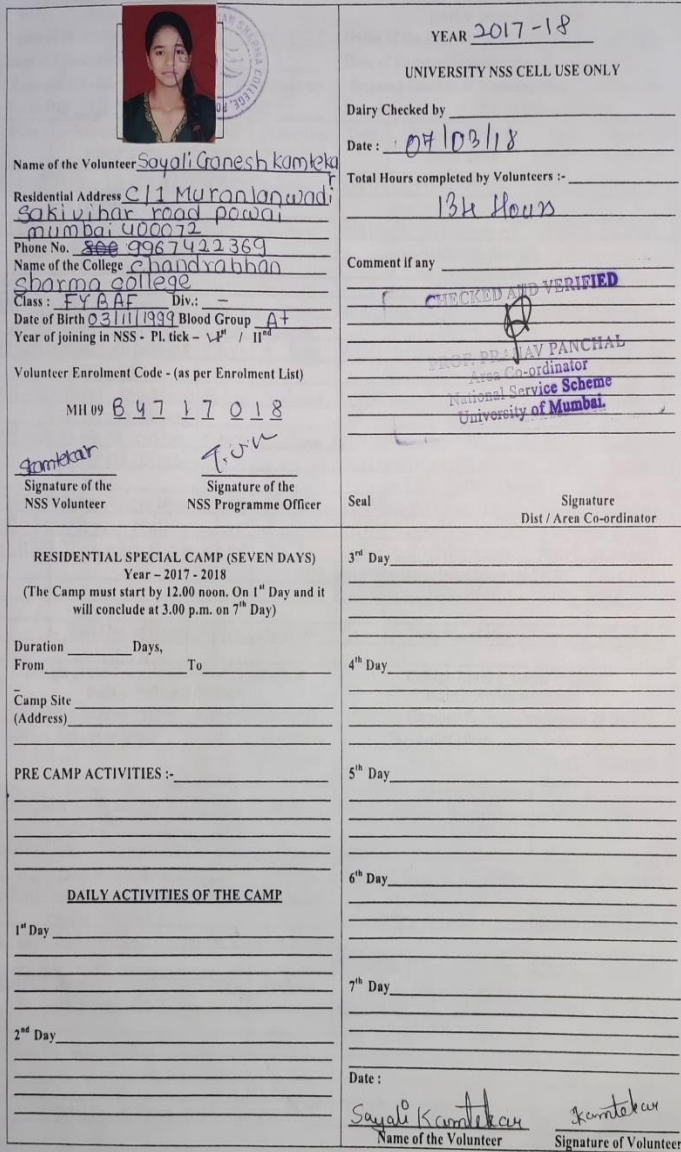 AN SHARMA COLLEGE, PO
Name of the Volunteer Sayali Ganesh kamtekar
Residential Address C/1 Muranjanwadi
Sakivihar road powai
mumbai 400072
Phone No. 9967422369
Name of the College Chandrabhan
Sharma college
Class : FYBAF Div.: –
Date of Birth 03/11/1999 Blood Group A+
Year of joining in NSS - Pl. tick – Ist / IInd
Volunteer Enrolment Code - (as per Enrolment List)
MH 09 B 4 7 1 7 0 1 8
Skamtekar
Signature of the Signature of the
NSS Volunteer NSS Programme Officer
YEAR 2017-18
UNIVERSITY NSS CELL USE ONLY
Dairy Checked by
Date : 07/03/18
Total Hours completed by Volunteers :-
134 Hours
Comment if any
CHECKED AND VERIFIED
PROF. PRANAV PANCHAL
Area Co-ordinator
National Service Scheme
University of Mumbai.
Seal Signature
Dist / Area Co-ordinator
RESIDENTIAL SPECIAL CAMP (SEVEN DAYS)
Year – 2017 - 2018
(The Camp must start by 12.00 noon. On 1st Day and it
will conclude at 3.00 p.m. on 7th Day)
Duration Days,
From To
Camp Site
(Address)
PRE CAMP ACTIVITIES :-
DAILY ACTIVITIES OF THE CAMP
1st Day
2nd Day
3rd Day
4th Day
5th Day
6th Day
7th Day
Date :
Sayali Kamtekar Kamtekar
Name of the Volunteer Signature of Volunteer